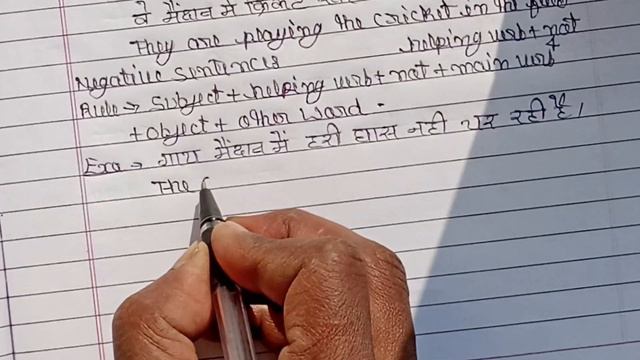 वे मैदान में क्रिकेट
They are playing the cricket in the
Negative sentences helping verb + not
Rule → Subject + helping verb + not + main verb
+ object + other word.
Exa → गाय मैदान में हरी घास नही चर रही है।
The